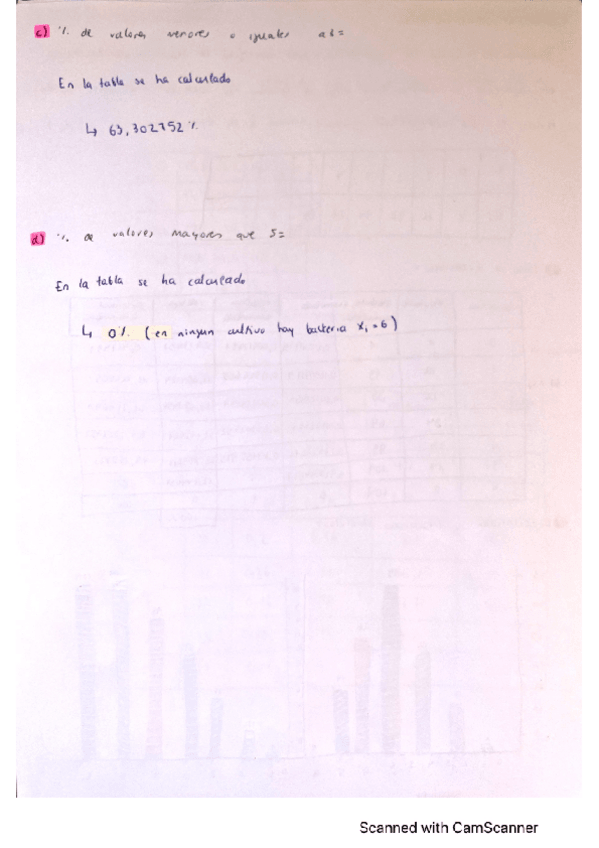 c) % de valores menores o iguales a 3=
En la tabla se ha calculado
↳ 63,302752 %
d) % de valores mayores que 5=
En la tabla se ha calculado
↳ 0% (en ningun cultivo hay bacteria xᵢ=6)
Scanned with CamScanner